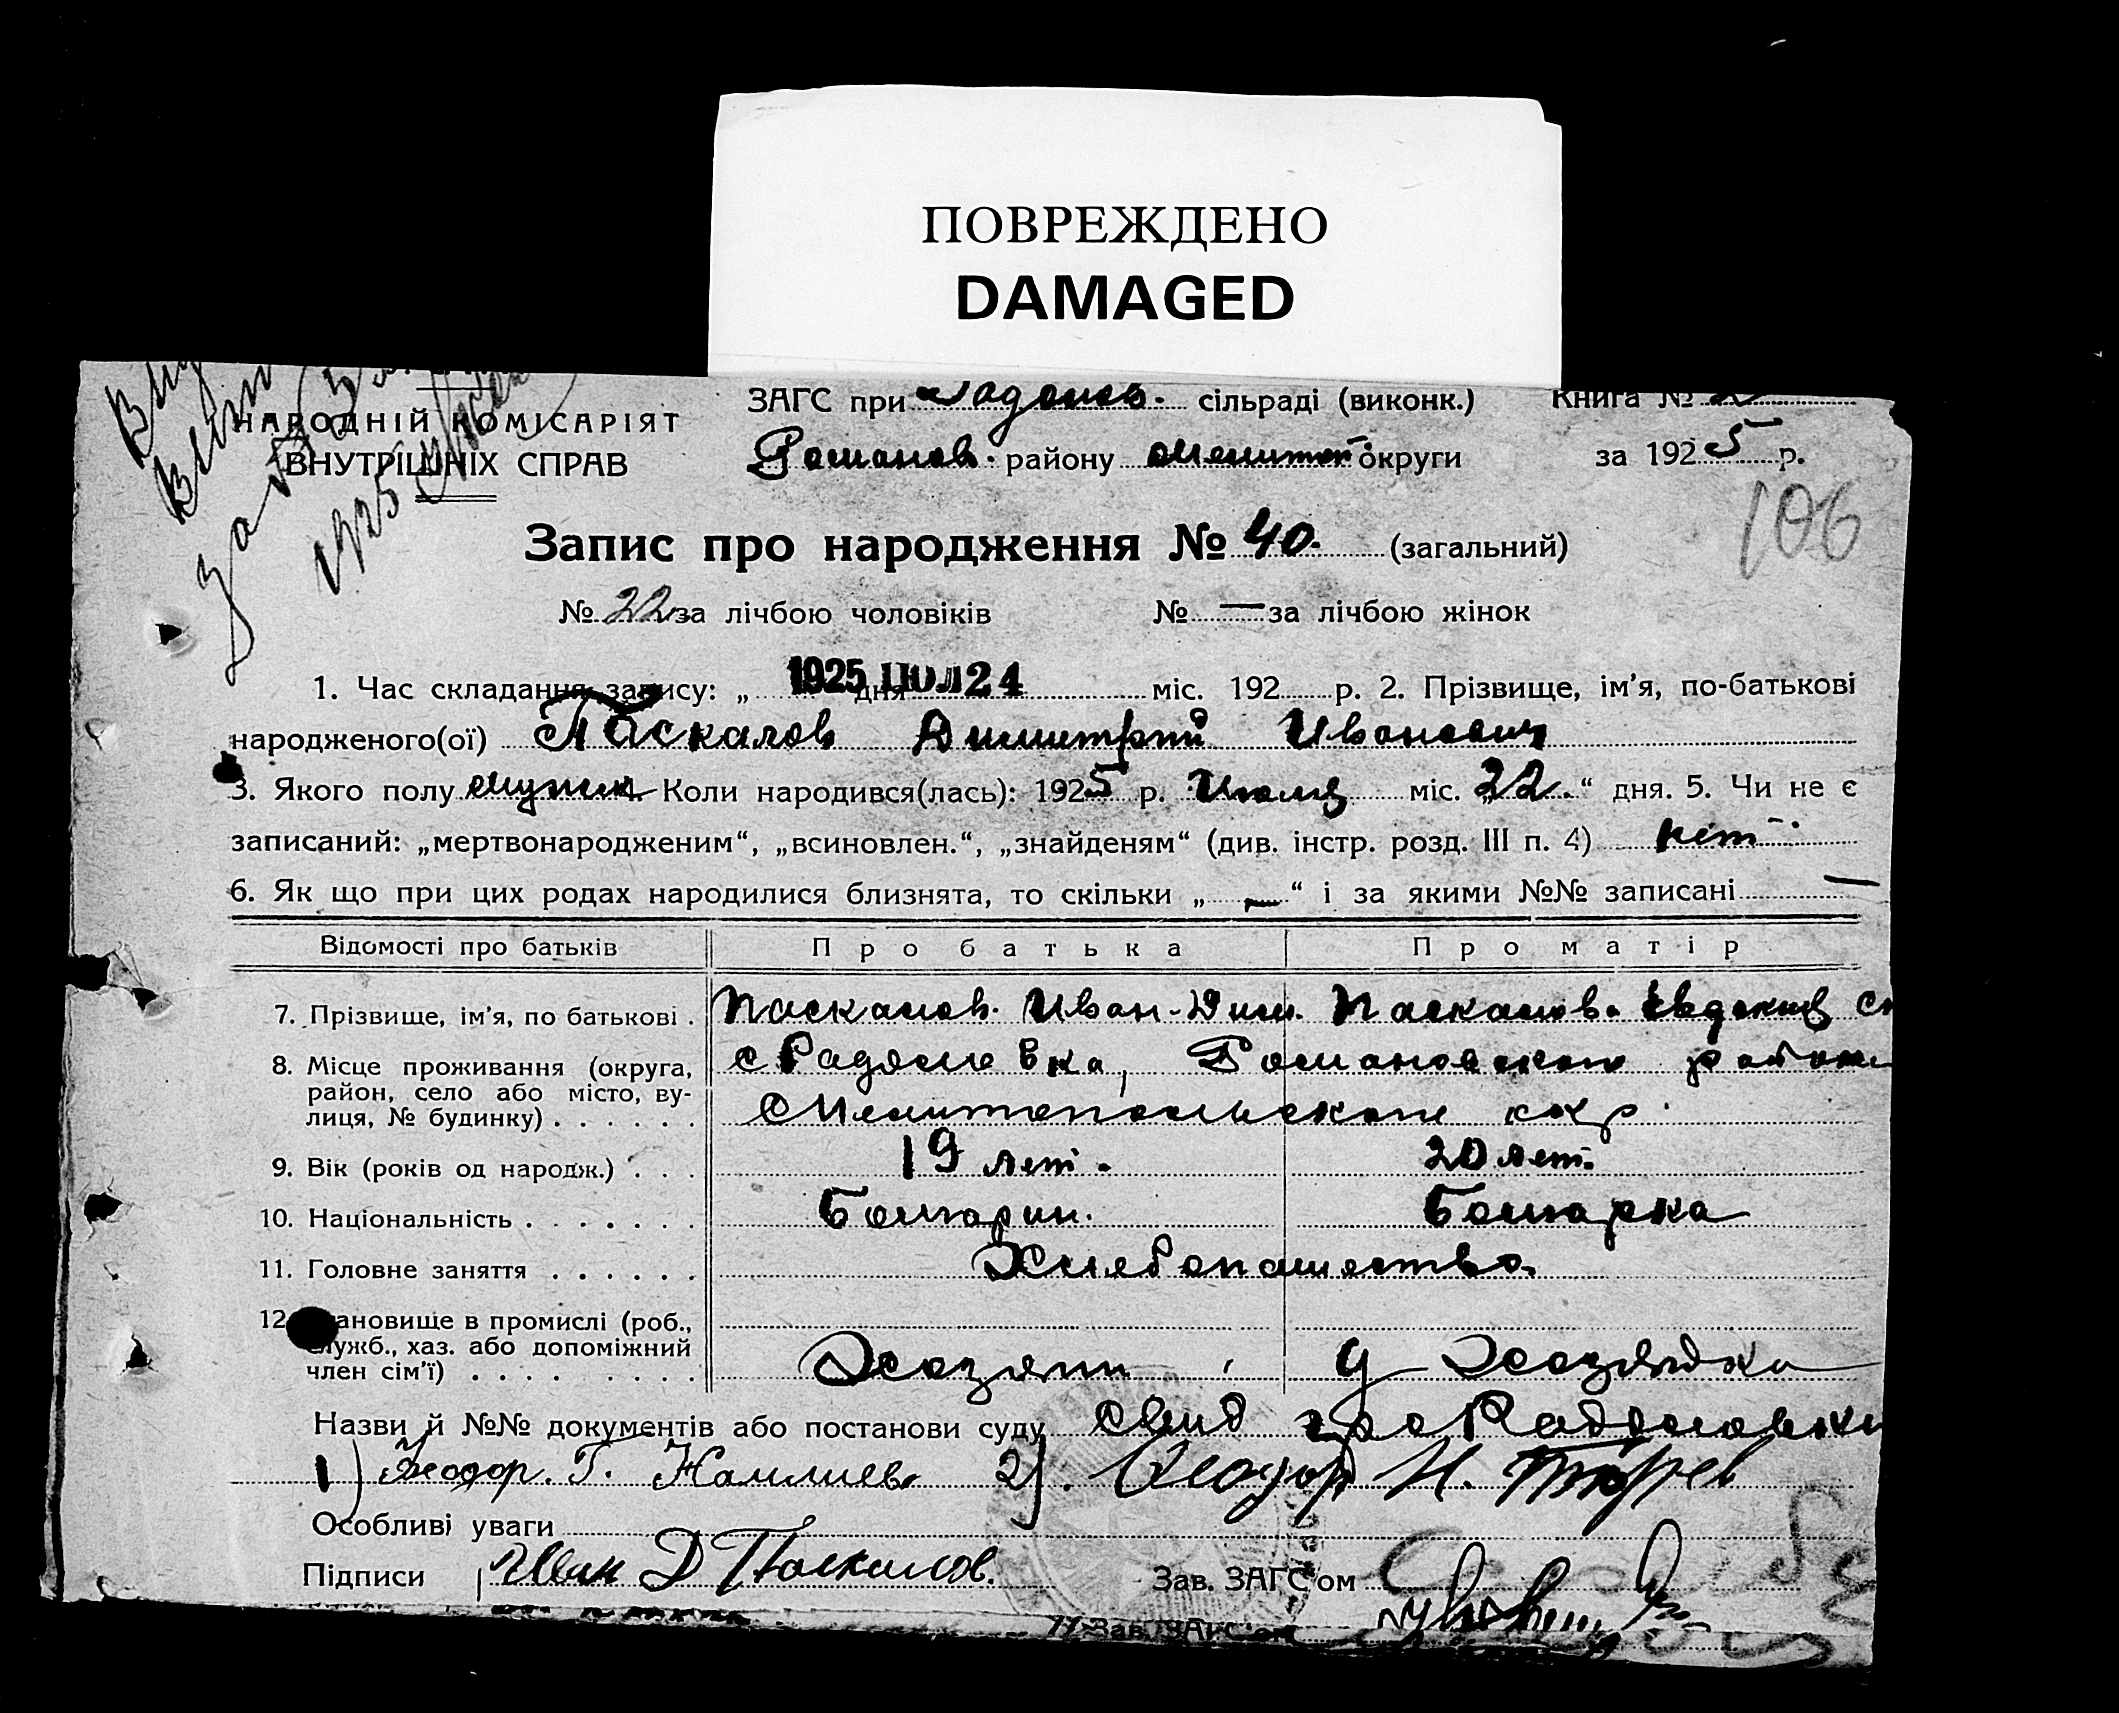 ПОВРЕЖДЕНО
DAMAGED
НАРОДНІЙ КОМІСАРІЯТ
ВНУТРІШНІХ СПРАВ
ЗАГС при Радолов. сільраді (виконк.) Книга № 2
Романов. району Мелитоп. округи за 1925 р.
106
1925
Запис про народження № 40. (загальний)
№ 22 за лічбою чоловіків № — за лічбою жінок
1. Час складання запису: „ 1925 ІЮЛ 24 дня міс. 192 р. 2. Прізвище, ім'я, по-батькові
народженого(ої) Паскалов Димитрий Иванович
3. Якого полу мужск. 4. Коли народився(лась): 1925 р. Июля міс. „22.“ дня. 5. Чи не є
записаний: „мертвонародженим“, „всиновлен.“, „знайденям“ (див. інстр. розд. III п. 4) нет
6. Як що при цих родах народилися близнята, то скільки „ — “ і за якими №№ записані —
Відомості про батьків Про батька Про матір
7. Прізвище, ім'я, по батькові . Паскалов. Иван Дим. Паскалов. Евдокия
8. Місце проживання (округа, район, село або місто, вулиця, № будинку) . . . . . . с Радоловка, Романовского района
Мелитопольского окр.
9. Вік (років од народж.) . . . 19 лет. 20 лет.
10. Національність . . . . . . . Болгарин. Болгарка
11. Головне заняття . . . . . . Хлебопашество.
12. Становище в промислі (роб., служб., хаз. або допоміжний член сім'ї) . . . . . . . . Хозяин Хозяйка
Назви й №№ документів або постанови суду Радоловки
1) Феодор. Г. 2). Феодор Н.
Особливі уваги
Підписи Иван Д Паскалов. Зав. ЗАГС'ом
Зав. ЗАГС'ом